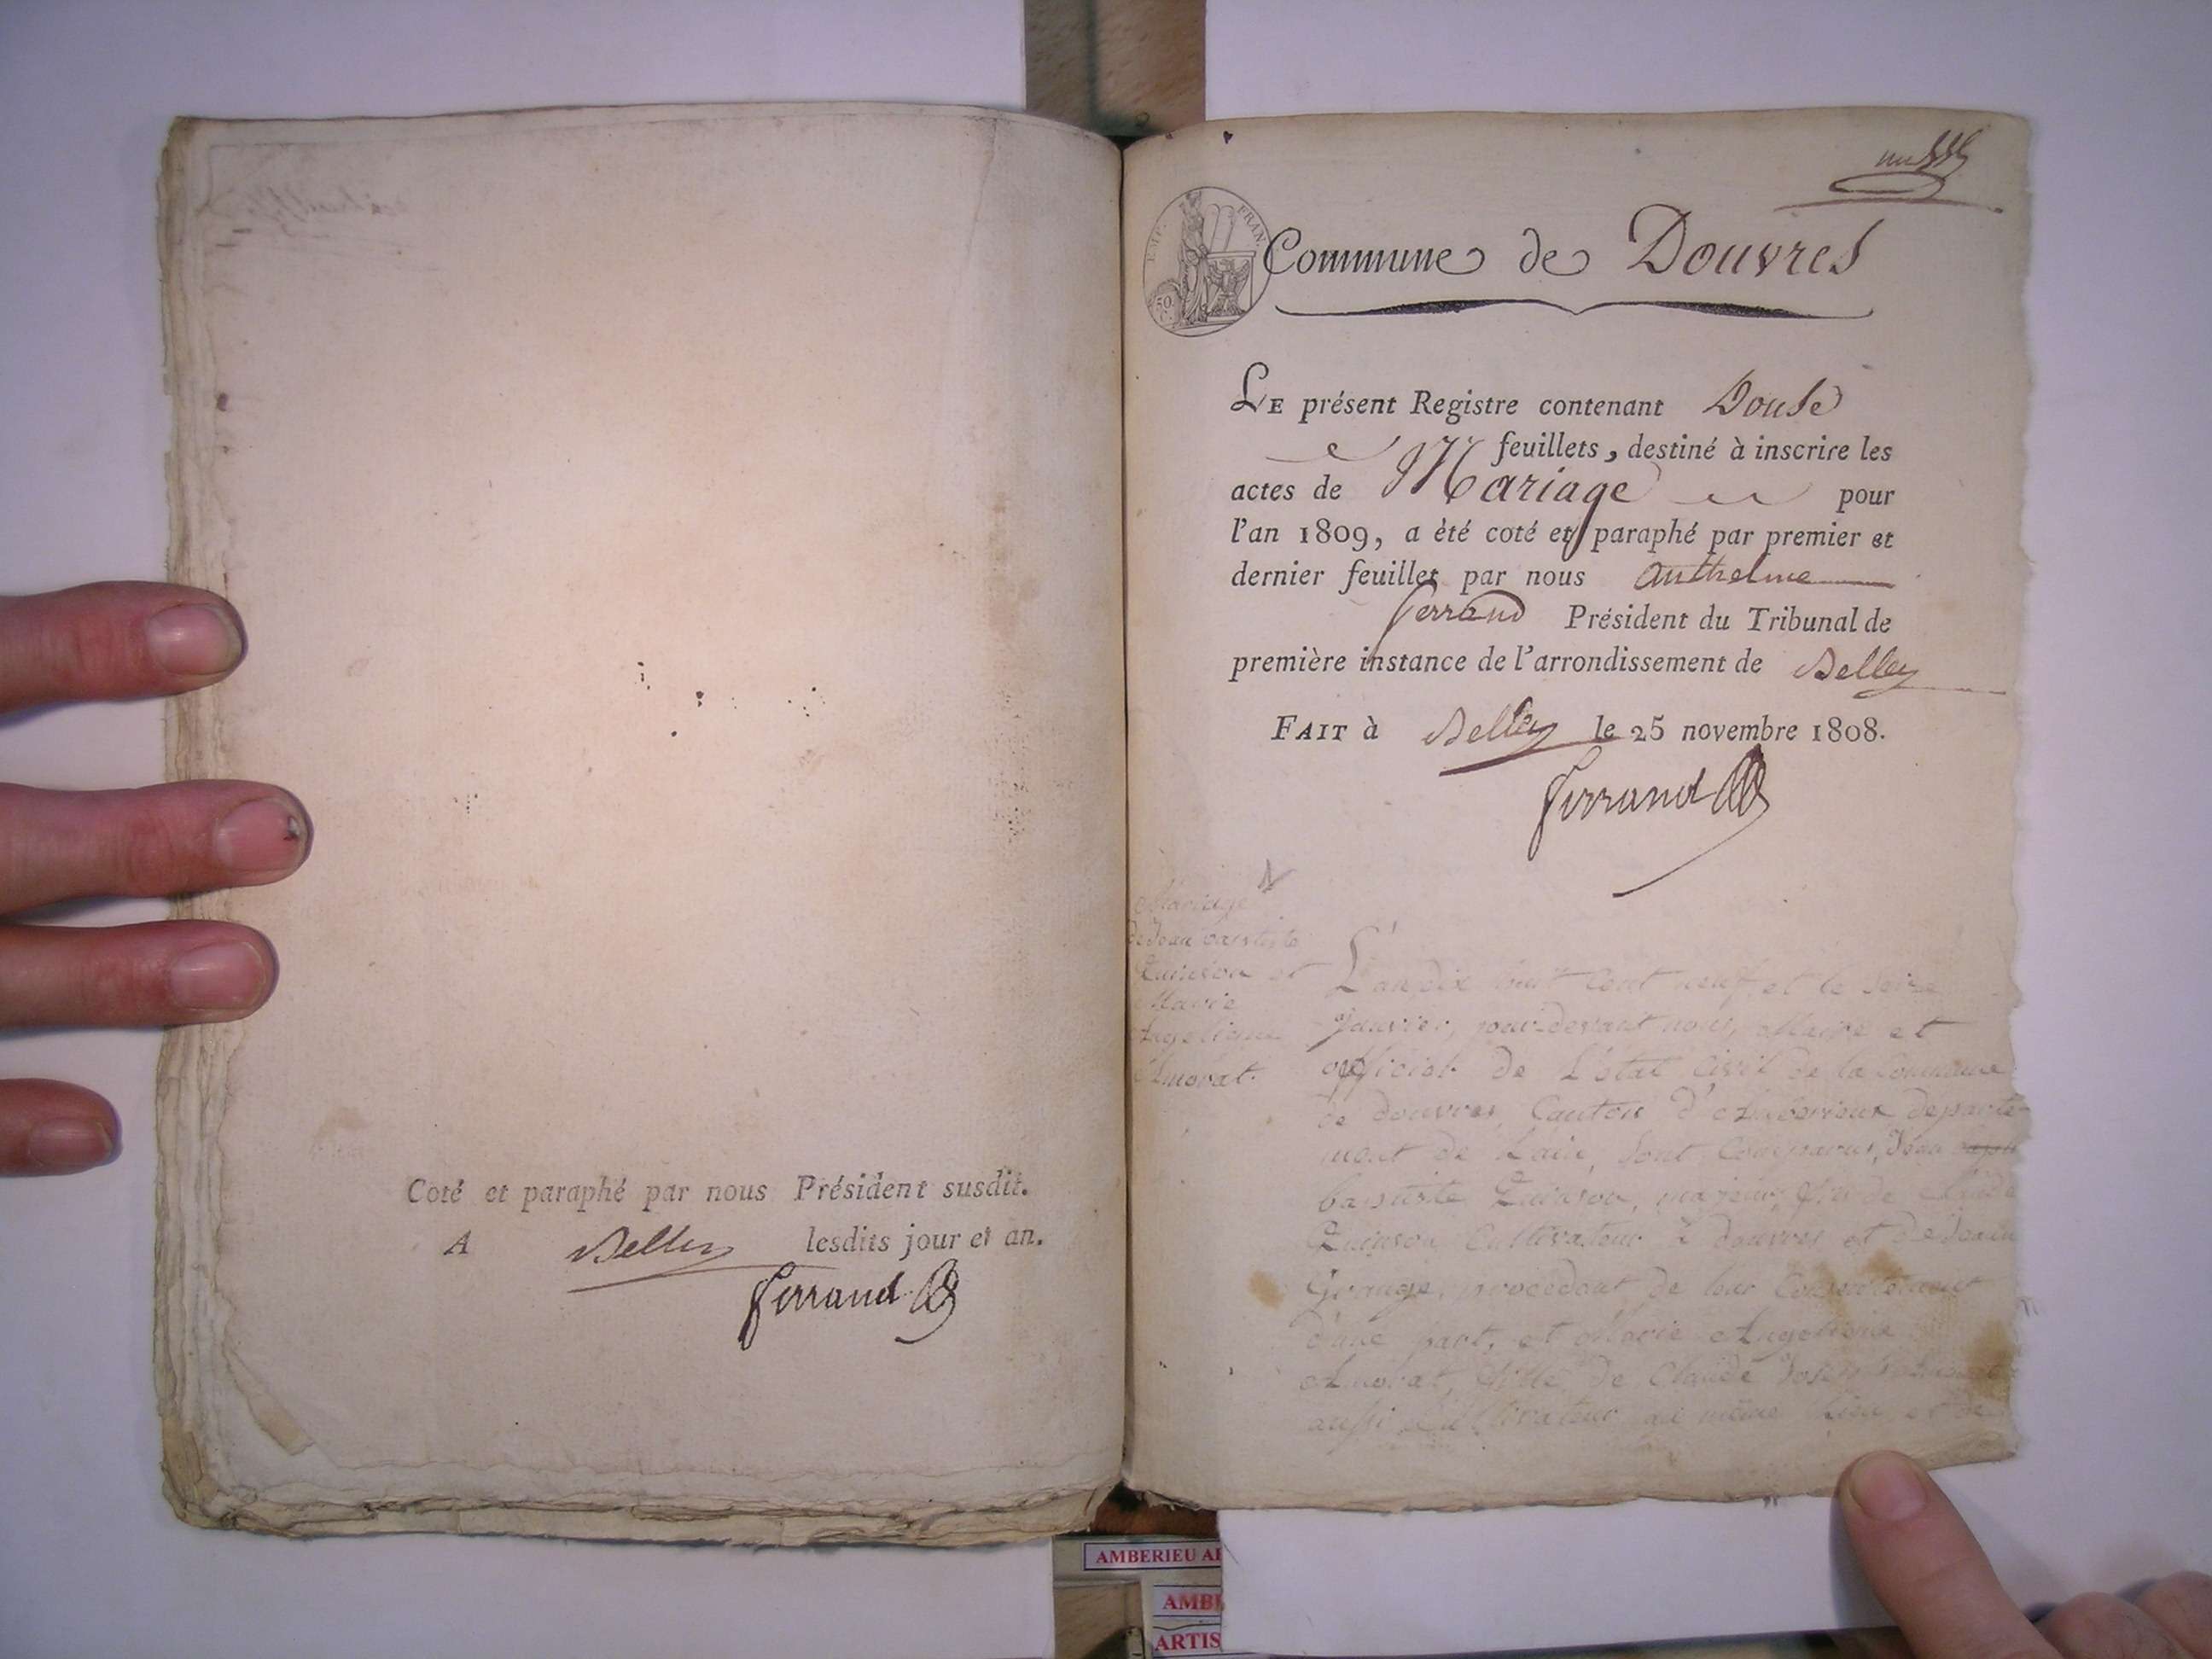 Coté et paraphé par nous Président susdit.
A Belley lesdits jour et an.
Ferrand
EMP. FRAN.
50.
C.
Commune de Douvres
LE présent Registre contenant Douse
feuillets, destiné à inscrire les
actes de Mariage pour
l'an 1809, a été coté et paraphé par premier et
dernier feuillet par nous Anthelme
Ferrand Président du Tribunal de
première instance de l'arrondissement de Belley
FAIT à Belley le 25 novembre 1808.
Ferrand
1
Mariage
de Jean baptiste
Quinson et
Marie
Angelique
Amorat.
L'an dix huit Cent neuf, et le seize
janvier, par devant nous, Maire et
officier de L'état Civil de la Commune
de douvres, Canton d'Amberieux departe-
ment de Lain, sont Comparus, Jean
baptiste Quinson, majeur, fils de Claude
Quinson Cultivateur à douvres et de
Grange, procedant de leur Consentement
d'une part, et Marie Angelique
Amorat, fille de Claude Joseph
aussi Cultivateur au même Lieu et de
AMBERIEU
AMB
ARTIS